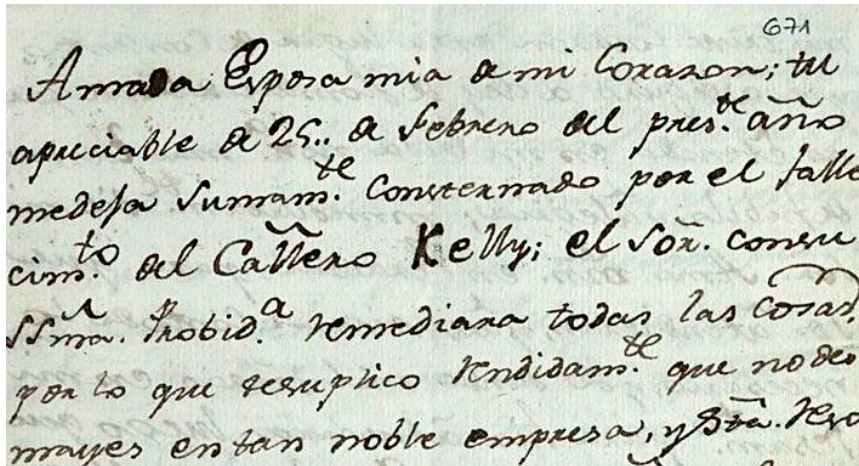 671
Amada Esposa mia de mi Corazon; tu
apreciable de 25,, de febrero del pres.te año
medeja sumam.te Consternado por el falle
cim.to del Cavallero Kelly; el Sor. consu
SSma. Probid.a remediara todas las Cosas,
por lo que tesuplico rendidam.te que nodes
mayes entan noble empresa, y Sta.